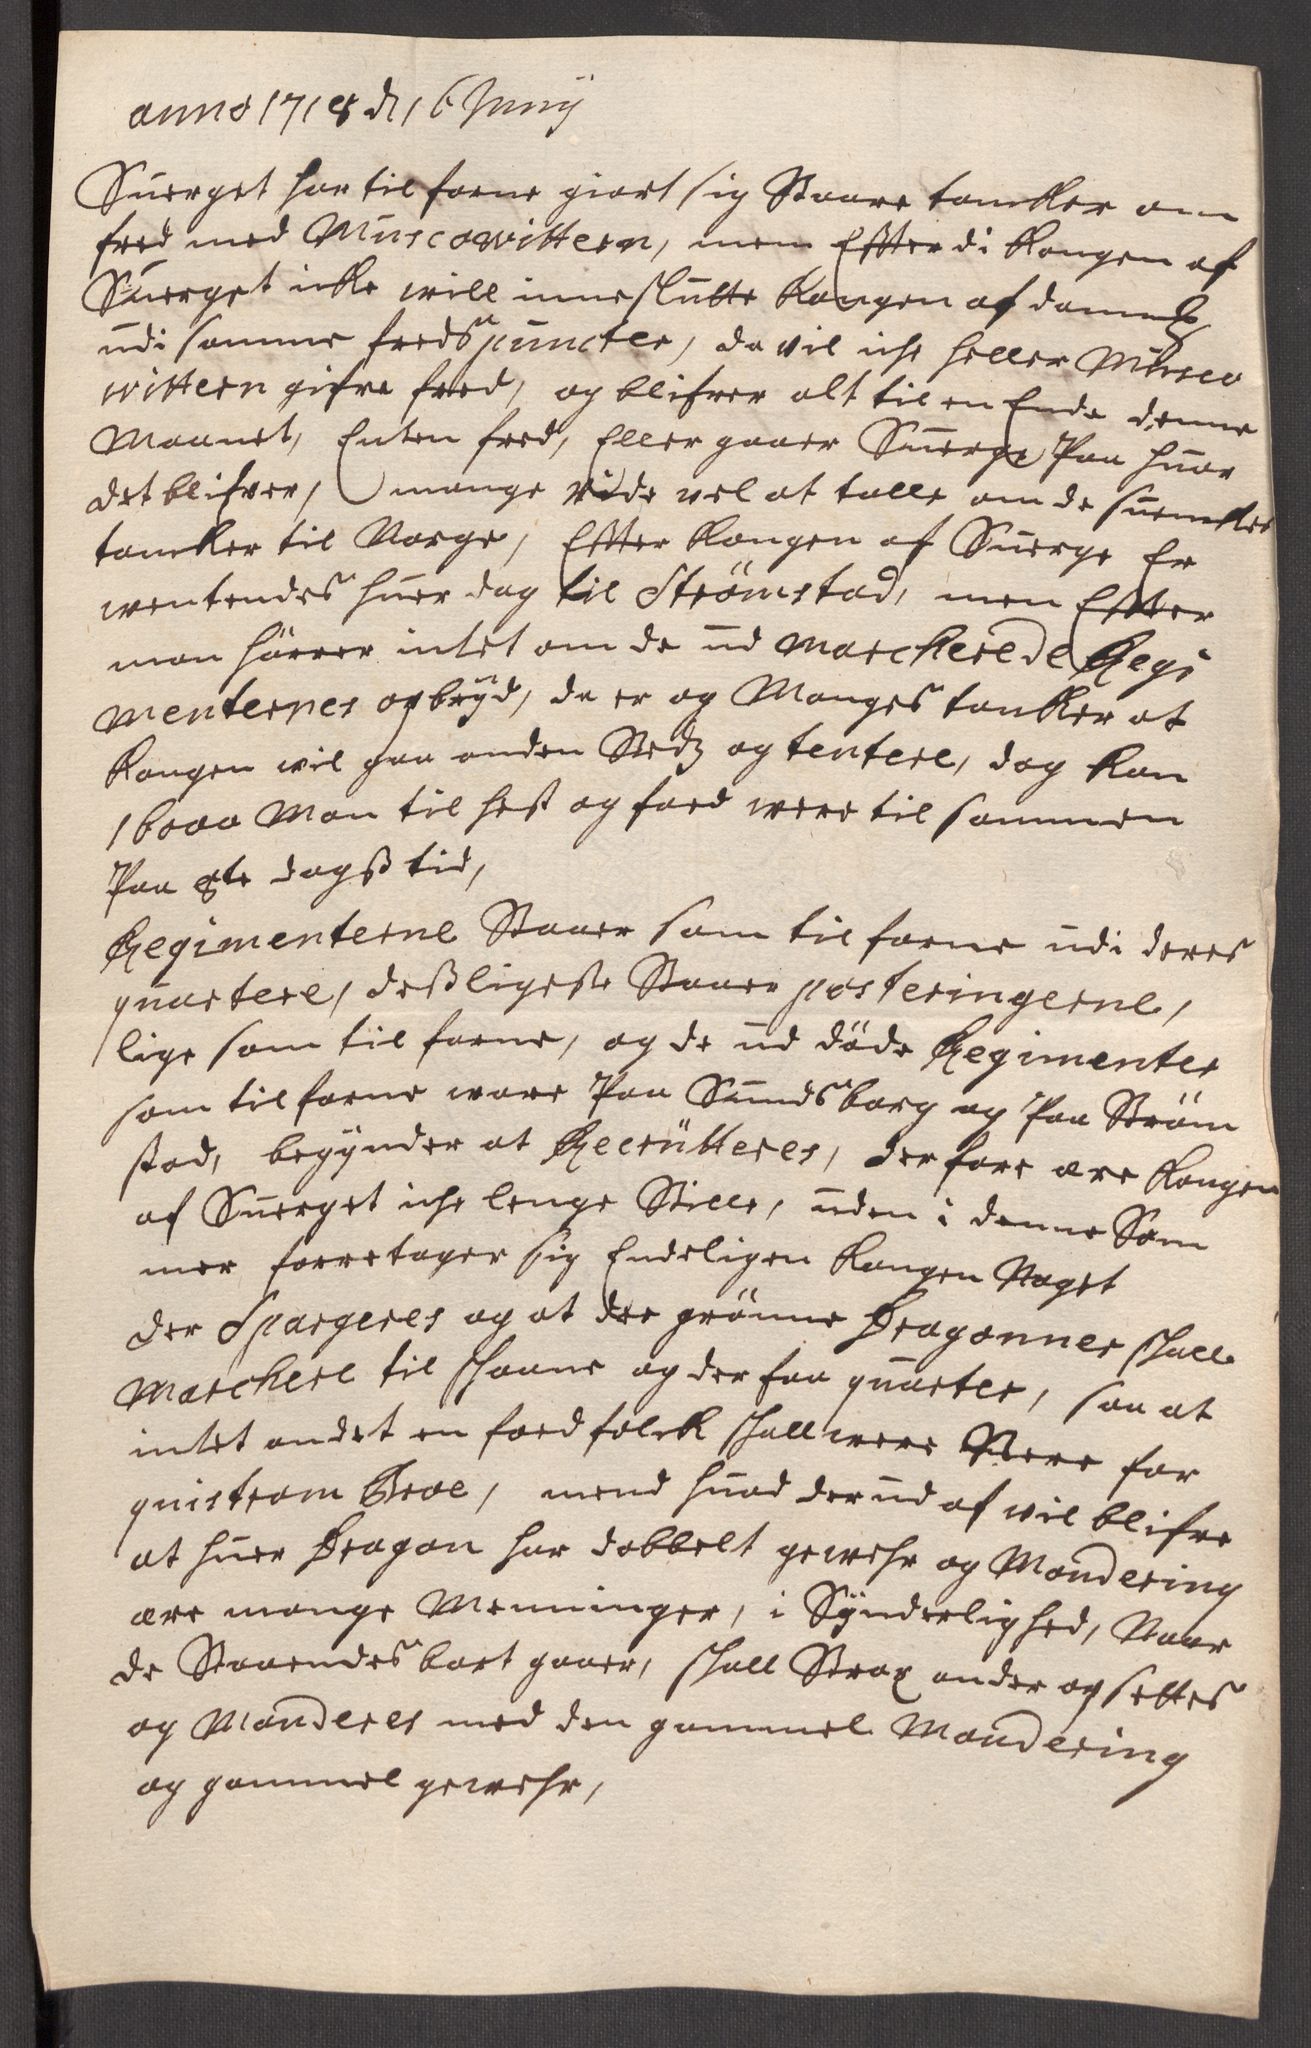 anno 1718 d 16 Junij
Suerget har til forne giort sig Staare tancker om
fred med Muscowittern, men Effterdi Kongen af
Suerget icke will inneslutte Kongen af danmk
udi samme freds puncter, da vil iche heller Musco
wittern gifve fred, og blifver alt til en Ende denne
Maanet, Enten fred, Eller gaaer Suerge Paa huor
det blifver, mange vide vel at talle om de suenskes
tancker til Norge, Effter Kongen af Suerge Er
wentendes huer dag til Strømstad, men Effter
man hörrer intet om de ud marcherede Regi
menternes opbryd, da er og Manges tancker at
Kongen wil paa anden Stedz og tentere, dog kan
16000 Man til hest og foed were til sammen
Paa 8te dagß tid,
Regimenterne Staaer som til forne udi deres
quartere, desligeste Staaer posteringerne,
lige som til forne, og de ud döde Regimenter
som til forne ware Paa Sundsborg og Paa Ström
stad, begynder at Recrütteres, der fore ere Kongen
af Suerget iche lenge Stille, uden i denne Som
mer forretager sig Endeligen Kongen Noget
der Spargeres og at der grönne Dragonner shall
Marchere til shaane og der faa quarter, saa at
intet andet en foed folck shall were Nere for
quistrom Broe, mend huad der ud af vil blifve
at huer Dragon har dobbelt gewehr og Mondering
ere mange Menninger, i Synderlighed, Naar
de Staaendes bort gaaer, shall Strax ander op settes
og Monderes med den gammel Mondering
og gammel gewehr,